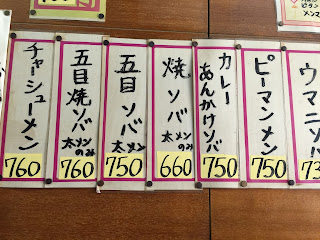 ウマニソ
73
ピーマンメン
750
カレー
あんかけソバ
750
焼ソバ
太メン
のみ
660
五目ソバ
太メン
750
五目焼ソバ
太メン
のみ
760
チャーシューメン
760